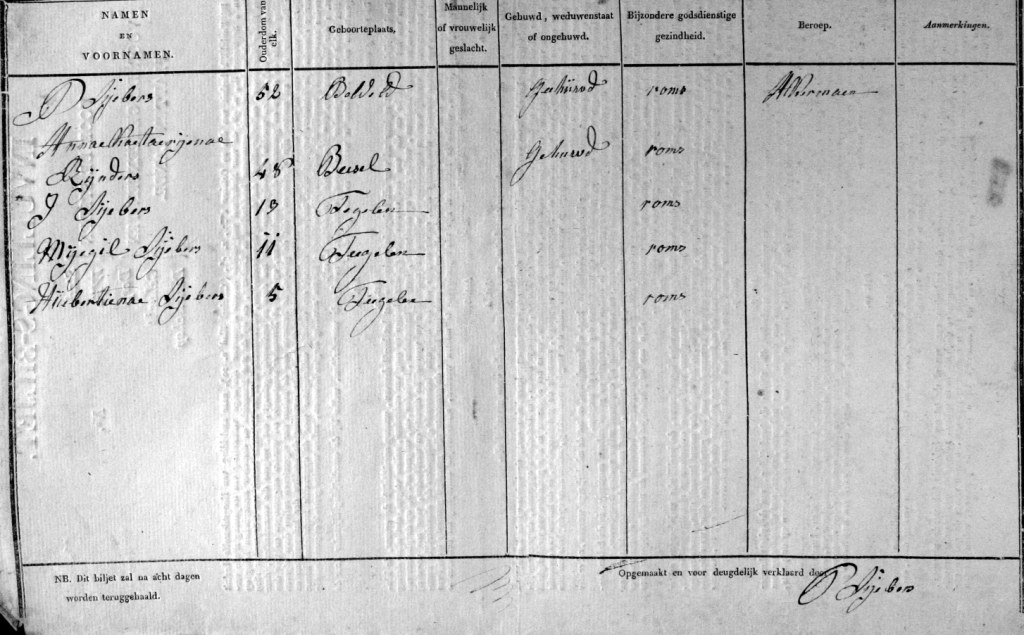 NAMEN EN VOORNAMEN. Ouderdom van elk. Geboorteplaats, Mannelijk of vrouwelijk geslacht. Gehuwd, weduwenstaat of ongehuwd. Bijzondere godsdienstige gezindheid. Beroep. Aanmerkingen.
P Sijebers 52 Belveld Gehuwd roms Akkerman
Annaelkaetaerijenae
Rijnders 48 Beesel Gehuwd roms
J Sijebers 13 Tegelen roms
Mijegil Sijebers 11 Teegelen roms
Huebertienae Sijebers 5 Teegelen roms
NB. Dit biljet zal na acht dagen worden teruggehaald.
Opgemaakt en voor deugdelijk verklaard door
P Sijebers